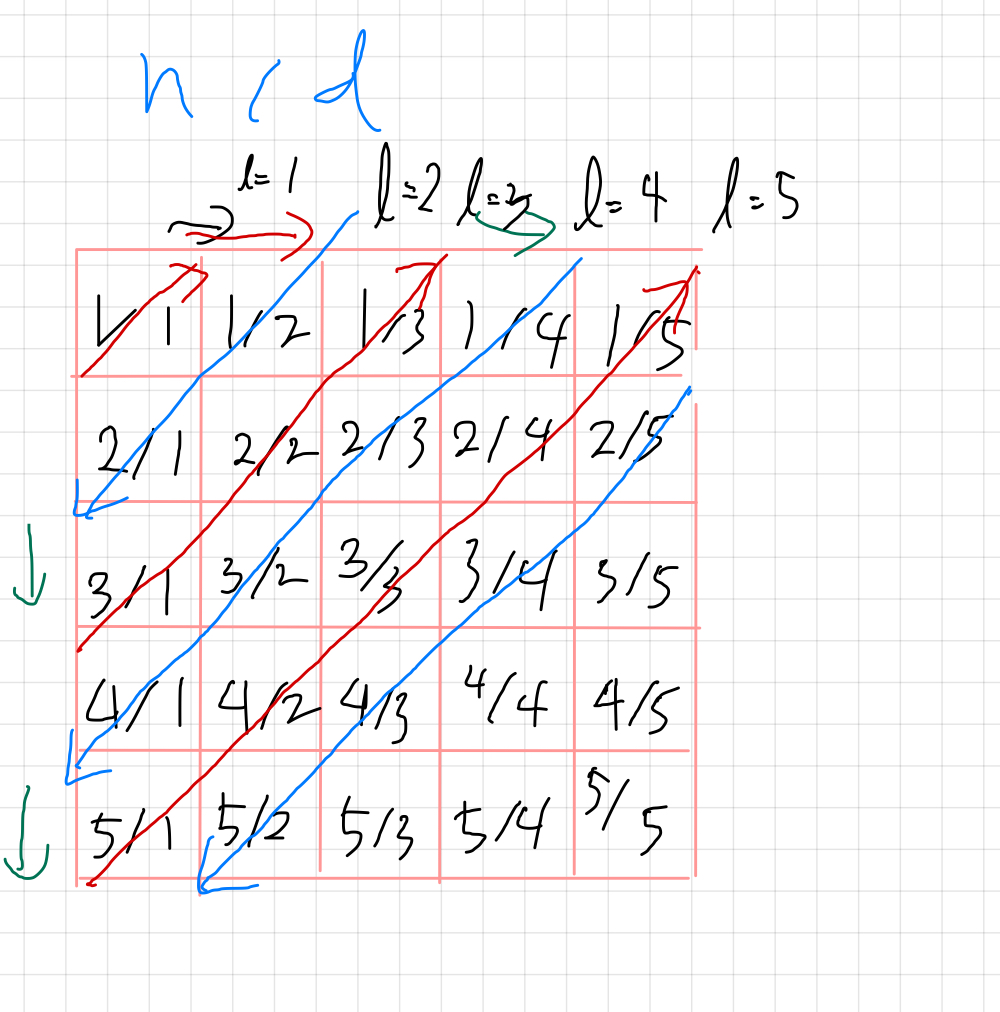 n / d
l=1 l=2 l=3 l=4 l=5
1/1 1/2 1/3 1/4 1/5
2/1 2/2 2/3 2/4 2/5
3/1 3/2 3/3 3/4 3/5
4/1 4/2 4/3 4/4 4/5
5/1 5/2 5/3 5/4 5/5